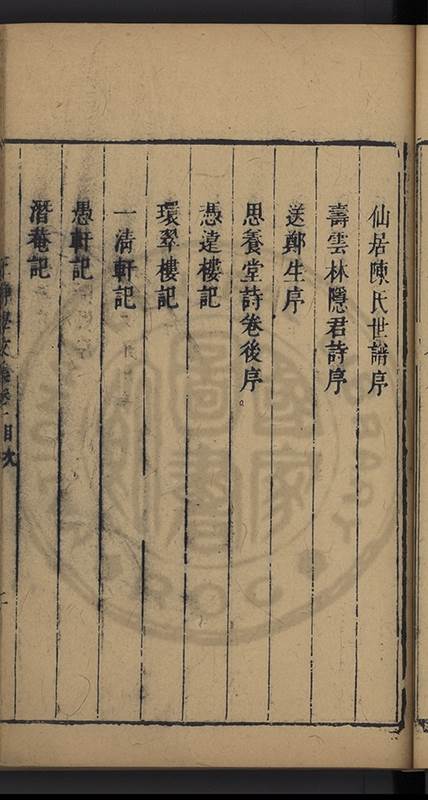 仙居陳氏世譜序
壽雲林隱君詩序
送鄭生序
思養堂詩卷後序
憑遠樓記
環翠樓記
一清軒記
愚軒記
潛菴記
目次